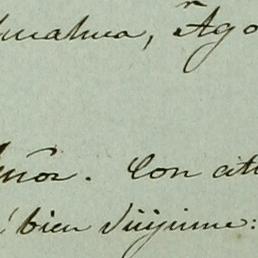 huahua, Ago
ñor. Con at
bien dirijirme: